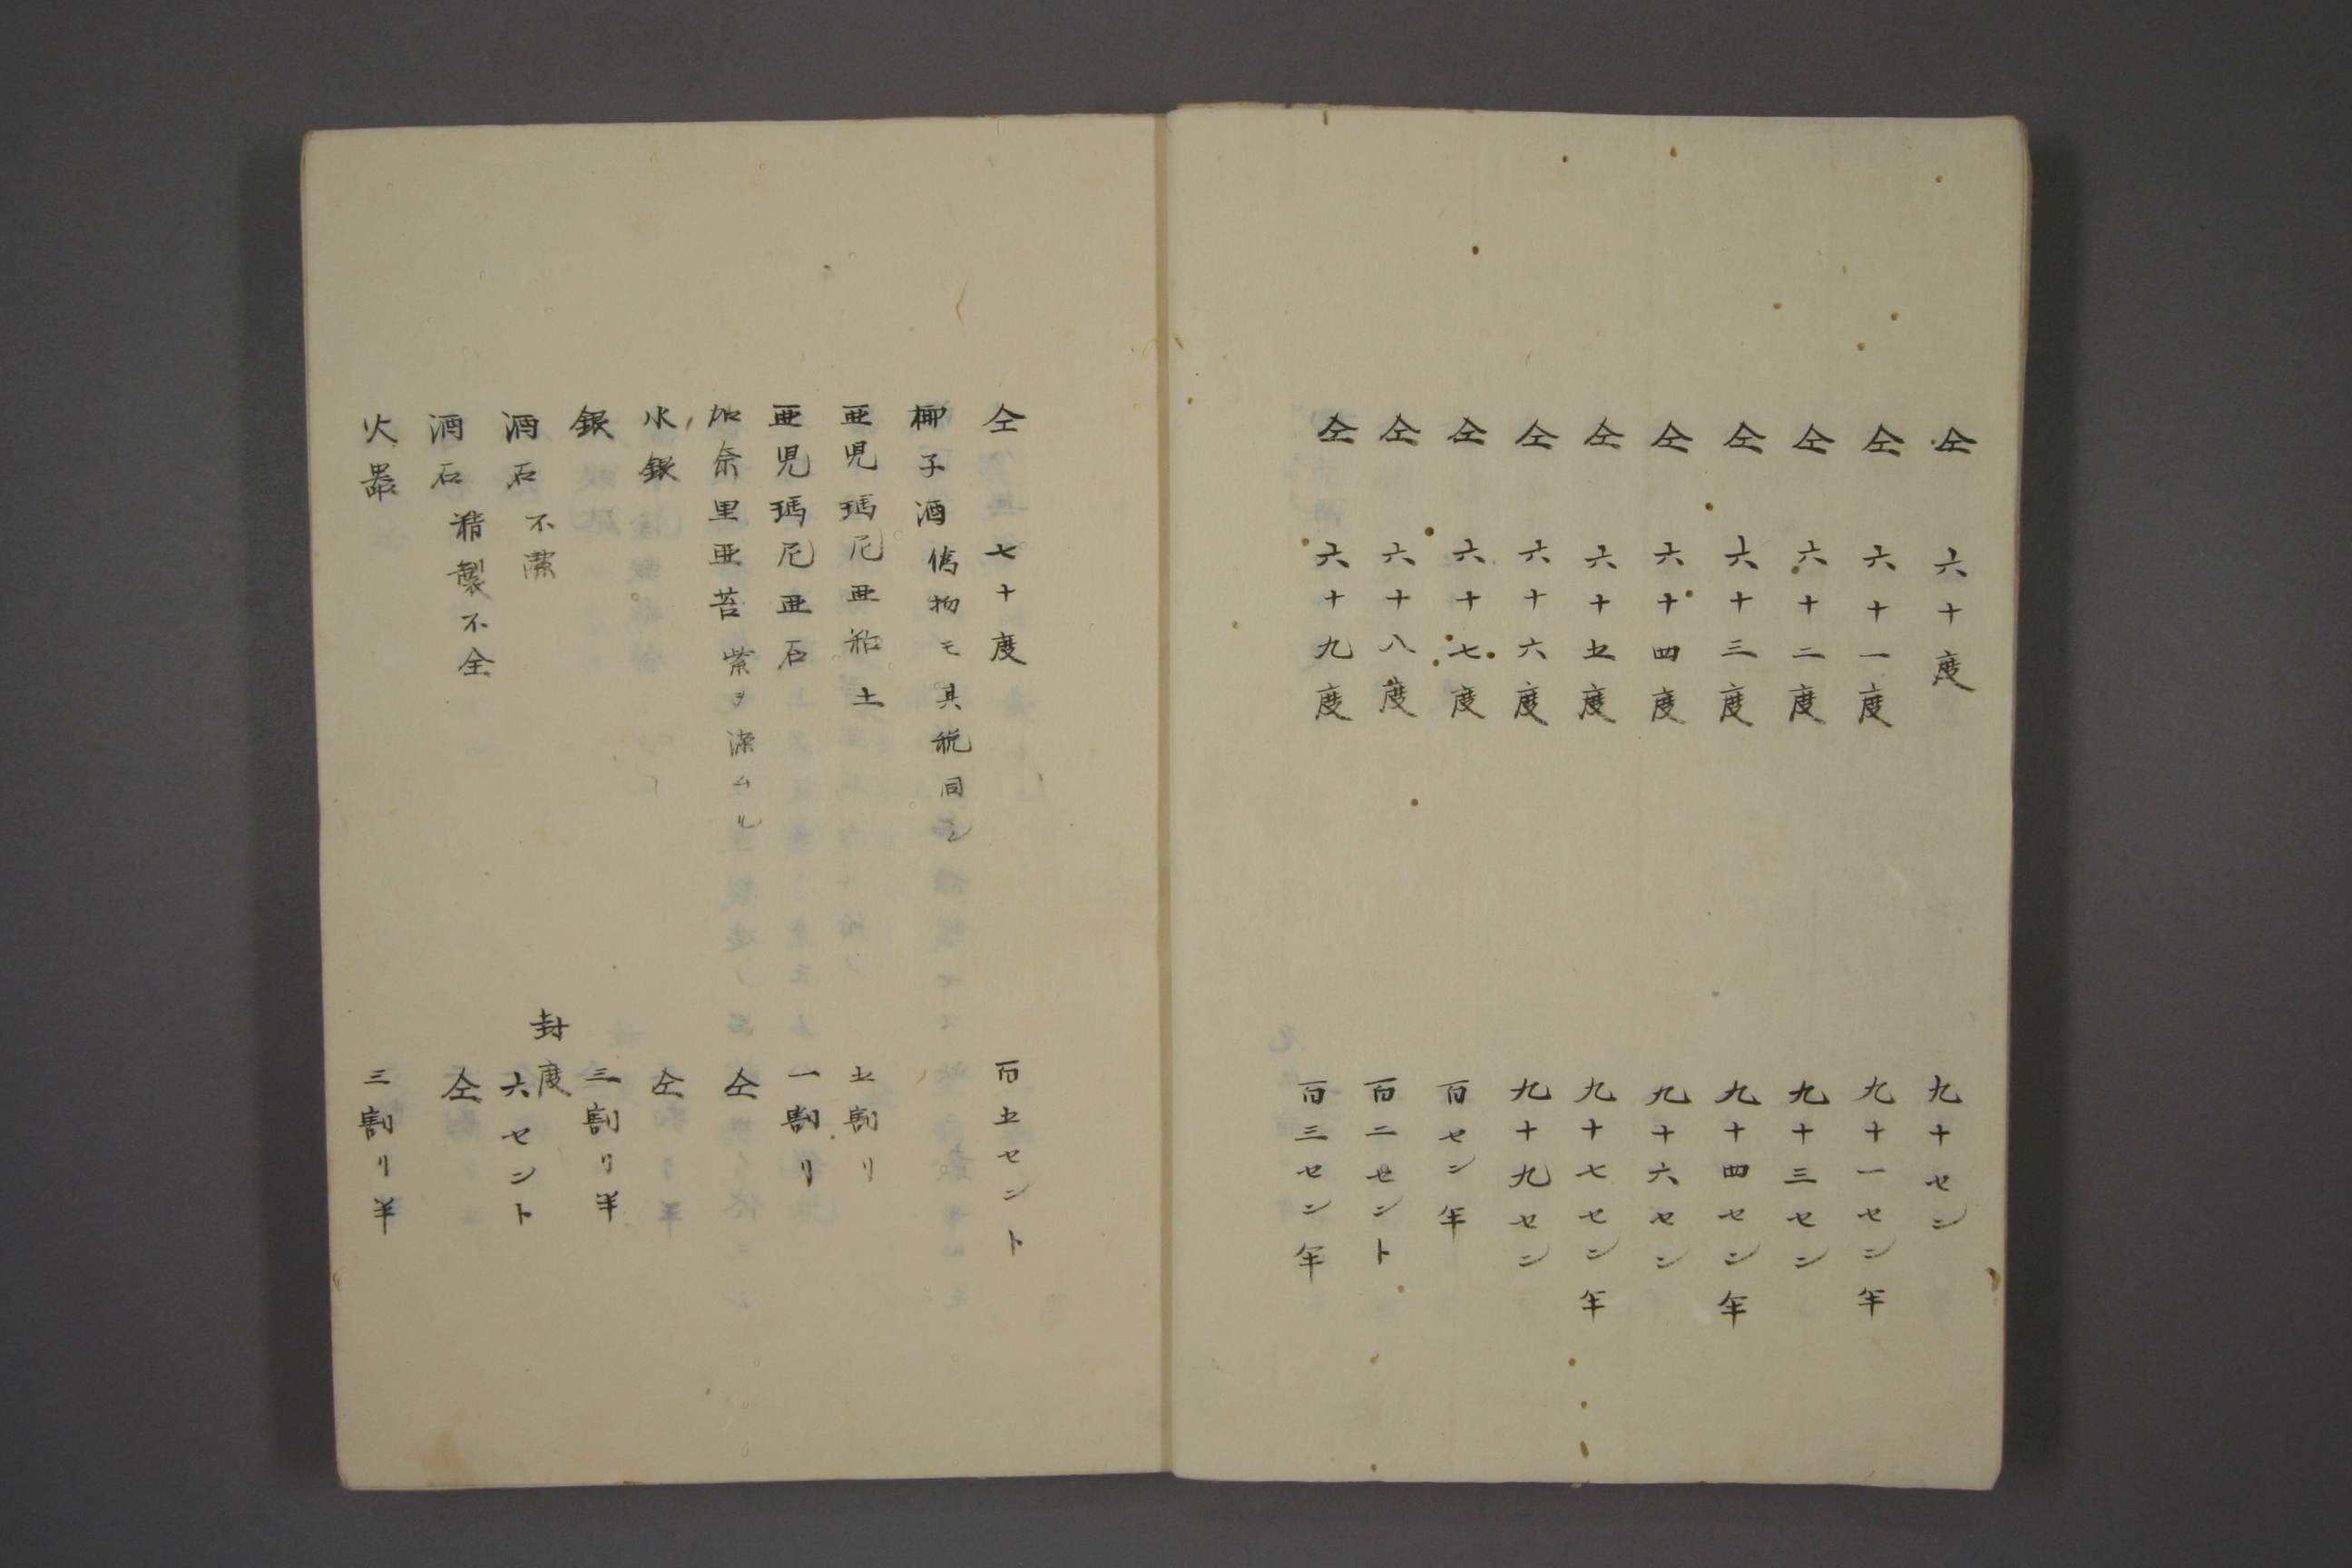 仝 六十度 九十セン
仝 六十一度 九十一セン半
仝 六十二度 九十三セン
仝 六十三度 九十四セン半
仝 六十四度 九十六セン
仝 六十五度 九十七セン半
仝 六十六度 九十九セン
仝 六十七度 百セン半
仝 六十八度 百二セント
仝 六十九度 百三セン半
仝 七十度 百五セント
椰子酒 偽物モ其税同シ
亜児瑪尼亜粘土 五割リ
亜児瑪尼亜石 一割リ
加奈里亜苔 紫ヲ染ムル 仝
水銀 仝
銀 三割リ半
酒石 不潔 封度 六セント
酒石 精製不全 仝
火器 三割リ半